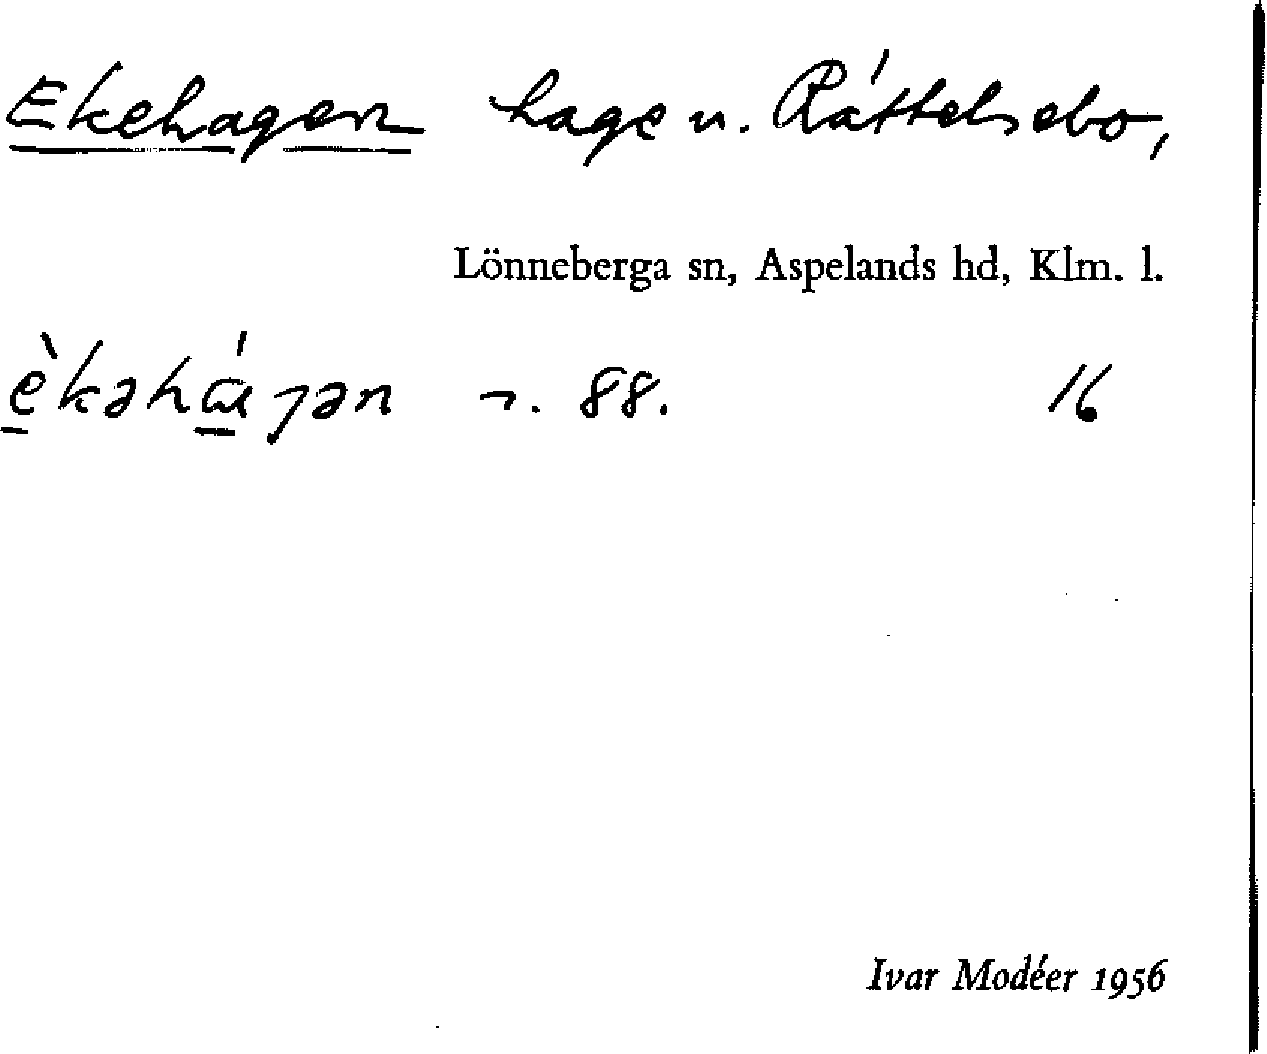 Ekehagen hage u. Ráttelsebo,
Lönneberga sn, Aspelands hd, Klm. l.
è̠kəhɑ̠́gən ¬. 88. 16
Ivar Modéer 1956